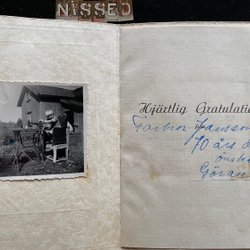 NiSSED
Hjärtlig Gratulati
Farbror Jansson
70 års d
önska
Göran